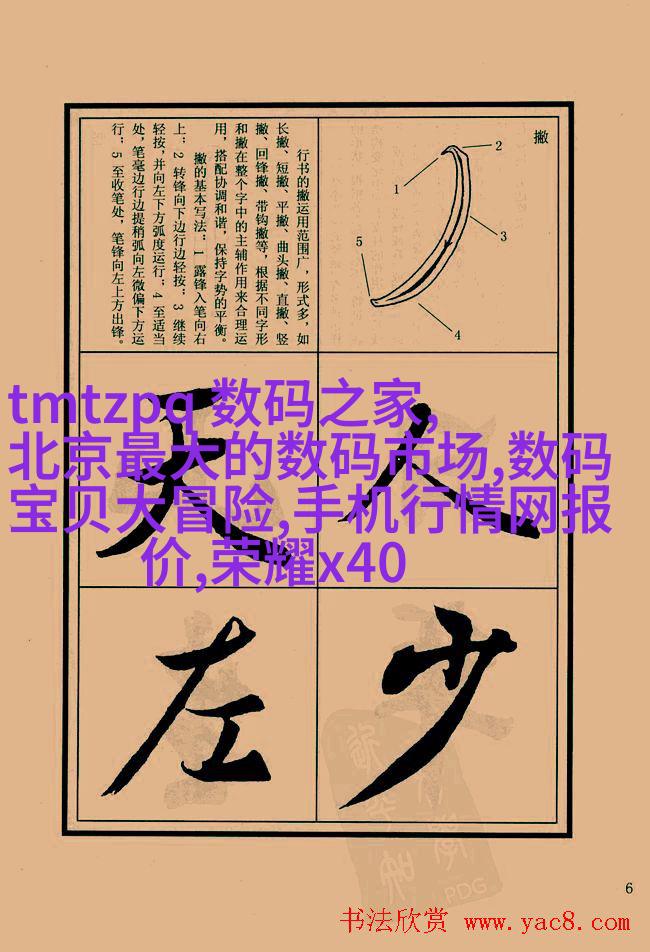 撇
1
2
3
4
5
行书的撇运用范围广，形式多，如
长撇、短撇、平撇、曲头撇、直撇、竖
撇、回锋撇、带钩撇等，根据不同字形
和撇在整个字中的主辅作用来合理运
用，搭配协调和谐，保持字势的平衡。
撇的基本写法：1 露锋入笔向右
上；2 转锋向下边行边轻按；3 继续
轻按，并向左下方弧度运行；4 至适当
处，笔毫边行边提稍弧向左微偏下方运
行；5 至收笔处，笔锋向左上方出锋。
tmtzpq 数码之家,
北京最大的数码市场,数码
宝贝大冒险,手机行情网报
价,荣耀x40
人
天
少
左
PDG
6
书法欣赏 www.yac8.com